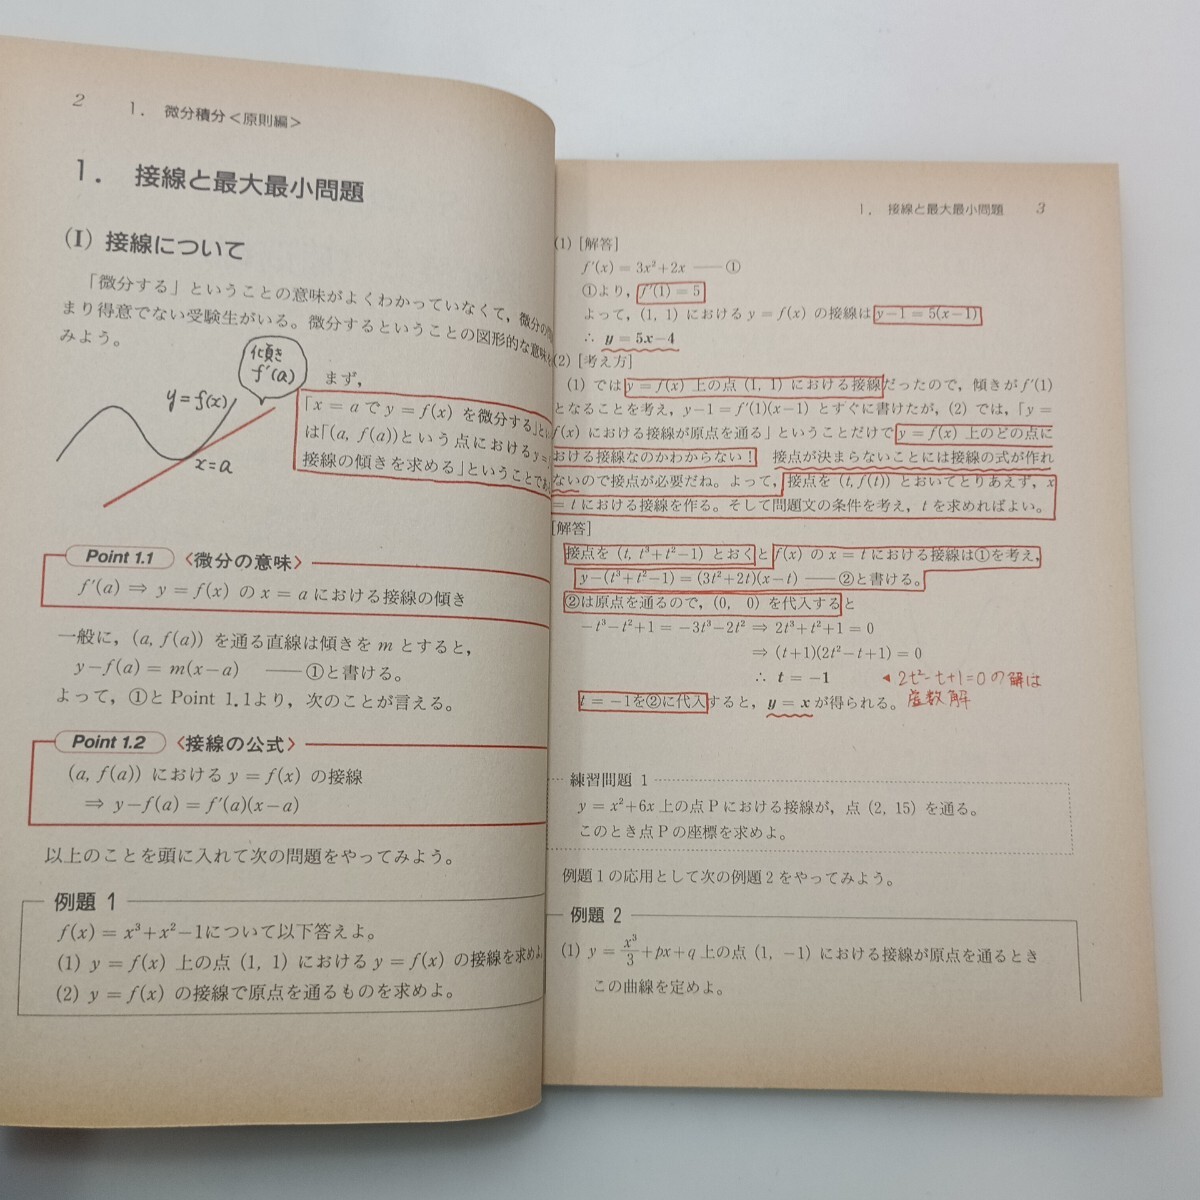 2　1．微分積分＜原則編＞
1．接線と最大最小問題
(I) 接線について
「微分する」ということの意味がよくわかっていなくて，微分の
まり得意でない受験生がいる。微分するということの図形的な意味を
みよう。
傾き
f′(a)
y=f(x)
x=a
まず，
「x＝aで y＝f(x) を微分する」とい
は「(a, f(a))という点におけるy＝
接線の傾きを求める」ということであ
Point 1.1 〈微分の意味〉
f′(a) ⇒ y＝f(x) の x＝a における接線の傾き
一般に，(a, f(a)) を通る直線は傾きを m とすると，
y−f(a)＝m(x−a) ――①と書ける。
よって，①と Point 1.1より，次のことが言える。
Point 1.2 〈接線の公式〉
(a, f(a)) における y＝f(x) の接線
⇒ y−f(a)＝f′(a)(x−a)
以上のことを頭に入れて次の問題をやってみよう。
例題 1
f(x)＝x³＋x²−1について以下答えよ。
(1) y＝f(x) 上の点 (1, 1) における y＝f(x) の接線を求めよ．
(2) y＝f(x) の接線で原点を通るものを求めよ。
1．接線と最大最小問題　3
(1) [解答]
f′(x)＝3x²＋2x ――①
①より，f′(1)＝5
よって，(1, 1) における y＝f(x) の接線は y−1＝5(x−1)
∴ y＝5x−4
(2) [考え方]
(1) では y＝f(x) 上の点 (1, 1) における接線だったので，傾きが f′(1)
となることを考え，y−1＝f′(1)(x−1) とすぐに書けたが，(2) では，「y＝
f(x) における接線が原点を通る」ということだけで y＝f(x) 上のどの点に
おける接線なのかわからない！　接点が決まらないことには接線の式が作れ
ないので接点が必要だね。よって，接点を (t, f(t)) とおいてとりあえず，x
＝t における接線を作る。そして問題文の条件を考え，t を求めればよい。
[解答]
接点を (t, t³＋t²−1) とおくと f(x) の x＝t における接線は①を考え，
y−(t³＋t²−1)＝(3t²＋2t)(x−t) ――②と書ける。
②は原点を通るので，(0, 0) を代入すると
−t³−t²＋1＝−3t³−2t² ⇒ 2t³＋t²＋1＝0
⇒ (t＋1)(2t²−t＋1)＝0
∴ t＝−1　◂ 2t²−t+1=0の解は
虚数解
t＝−1を②に代入すると，y＝x が得られる。
練習問題 1
y＝x²＋6x 上の点Pにおける接線が，点 (2, 15) を通る。
このとき点Pの座標を求めよ。
例題1の応用として次の例題2をやってみよう。
例題 2
(1) y＝x³/3＋px＋q 上の点 (1, −1) における接線が原点を通るとき
この曲線を定めよ。